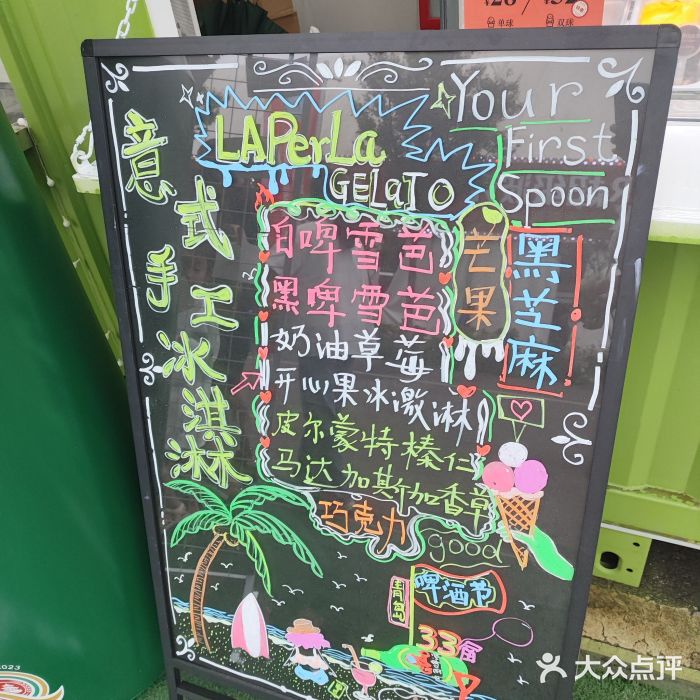 单球
双球
意式手工冰淇淋
LAPerLa
GELaTO
Your
First
Spoon
白啤雪芭
黑啤雪芭
奶油草莓
开心果冰激淋
皮尔蒙特榛仁
马达加斯加香草
巧克力
芒果
黑芝麻
good
青岛
啤酒节
33届
2023
大众点评